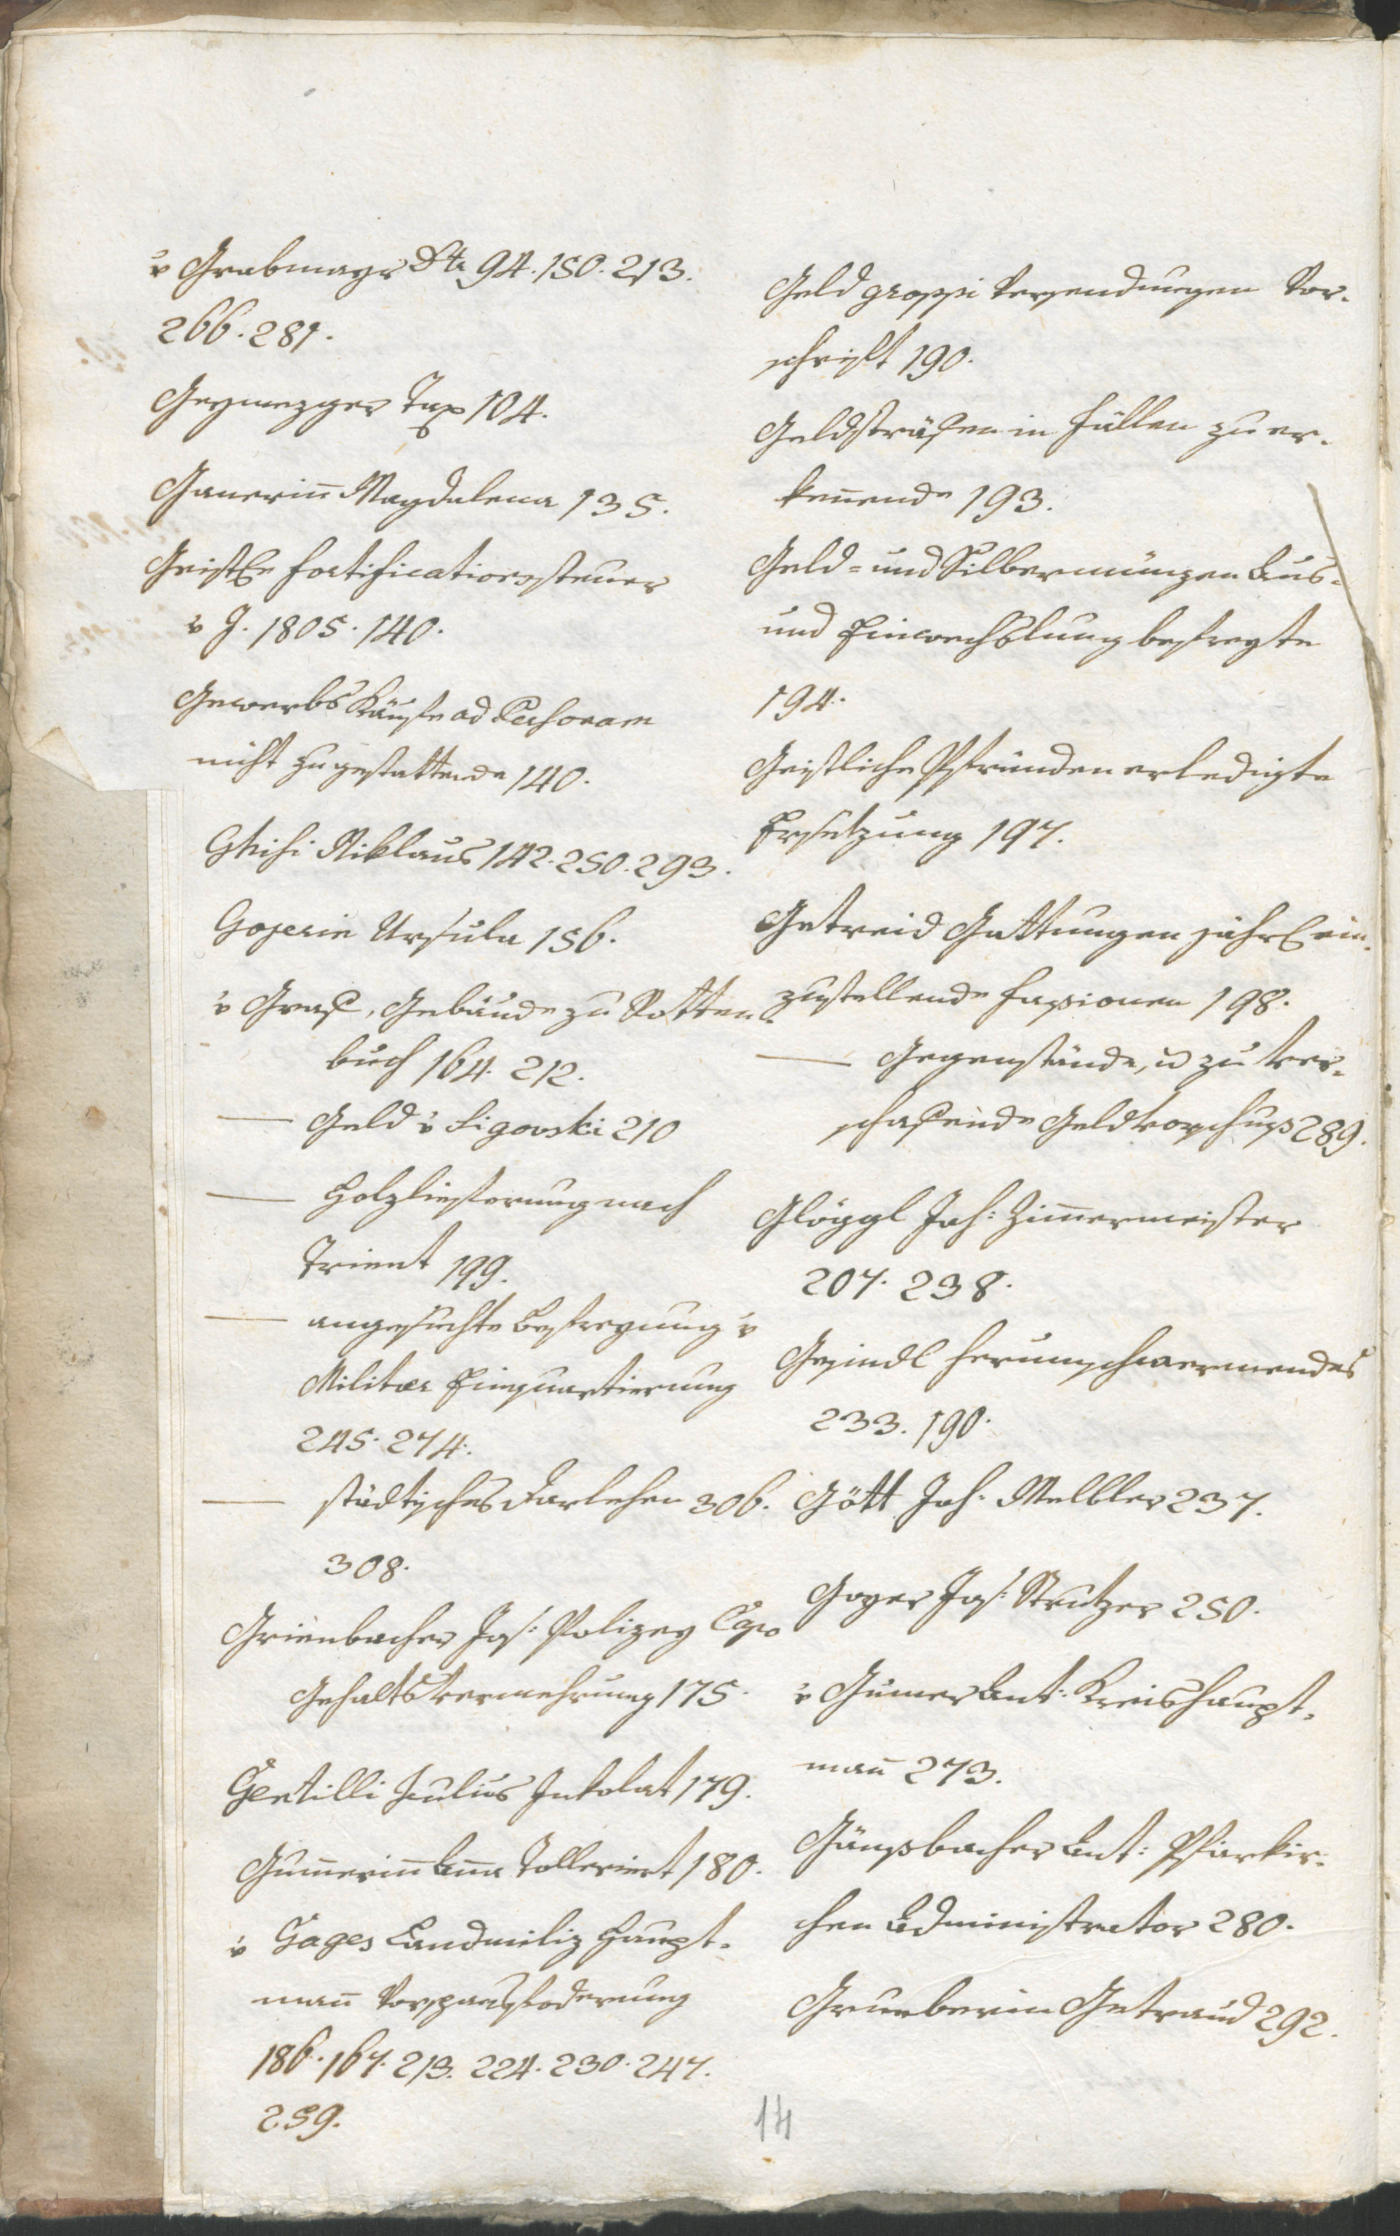 v Grabmayr Dr 94. 150. 213.
266. 281.
Geymezger Tax 104.
Ganerin̄ Magdalena 135.
Geistle Fortificationssteuer
v J. 1805. 140.
Gewerbs Käufe ad Personam
nicht zugestattende 140.
Ghisi Niklaus 142. 250. 293.
Gojerin Ursula 156.
v Graf, Gebäude zu Rotten
buch 164. 212.
— Geld v Ligovski 210
— Holzlieferung nach
Trient 199.
— angesuchte Befreyung v
Militär Einquartierung
245. 274.
— städtisches Darlehen 306.
308.
Grienbacher Jos: Polizey
Gehaltsvermehrung 175.
Gentilli Julius Inkolat 179.
Gum̄erin̄ Ana Tolleriert 180.
v Gages Landmiliz Haupt-
man̄ Vorspansfoderung
186. 167. 213. 224. 230. 247.
259.
Geld groppi Versendungen Vor-
schrift 190.
Geldsträfen in Fällen zu er-
kennende 193.
Geld- und Silbermünzen Aus-
und Einwechslung befreyte
194.
Geistliche Pfründen erledigte
Ersetzung 197.
Getreid Gattungen jährl ein-
zustellende Fassionen 198.
— Gegenstände, u zu ver-
schafende Geldvorschuß 289.
Glöggl Joh: Zim̄ermeister
207. 238.
Gesindl herumschwermendes
233. 190.
Gött Joh: Melbler 237.
Goger Jos: Strutzer 250.
v Gumer Ant: Kreishaupt-
man̄ 273.
Gänsbacher Ant: Pfarkir-
chen Administrator 280.
Gruberin Getraud 292.
14